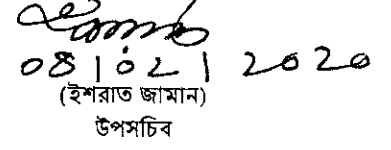 08|02|2020
(ইশরাত জামান)
উপসচিব